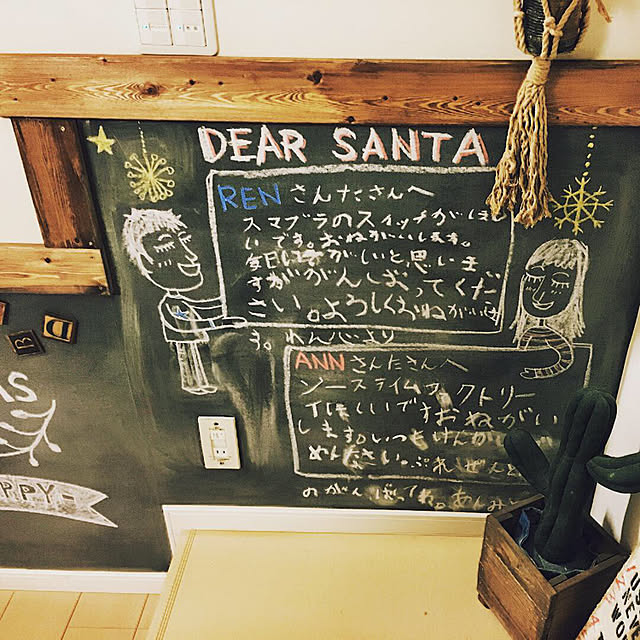 DEAR SANTA
REN さんたさんへ
スマブラのスイッチがほし
いです。おねがいします。
毎日いそがしいと思いま
すががんばってくだ
さい。よろしくおねがいしま
す。れんじより
ANN さんたさんへ
ソースライムファクトリー
てほしいですおねがい
します。いつもけんか
めんなさい。ぷれぜんと
のがんばってね。あんみ
AS
PPY
B